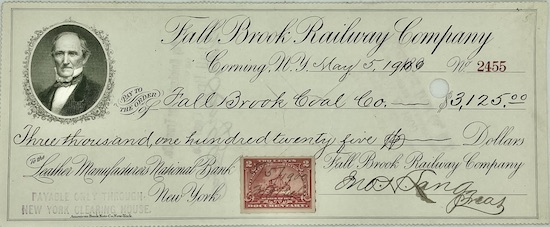 Fall Brook Railway Company
Corning, N.Y. May 5, 1900 No. 2455
PAY TO THE ORDER of Fall Brook Coal Co. $3,125.00
Three thousand, one hundred twenty five Dollars
To the Leather Manufacturers National Bank
New York
Fall Brook Railway Company
Treas
PAYABLE ONLY THROUGH
NEW YORK CLEARING HOUSE.
TWO CENTS
2 2
DOCUMENTARY